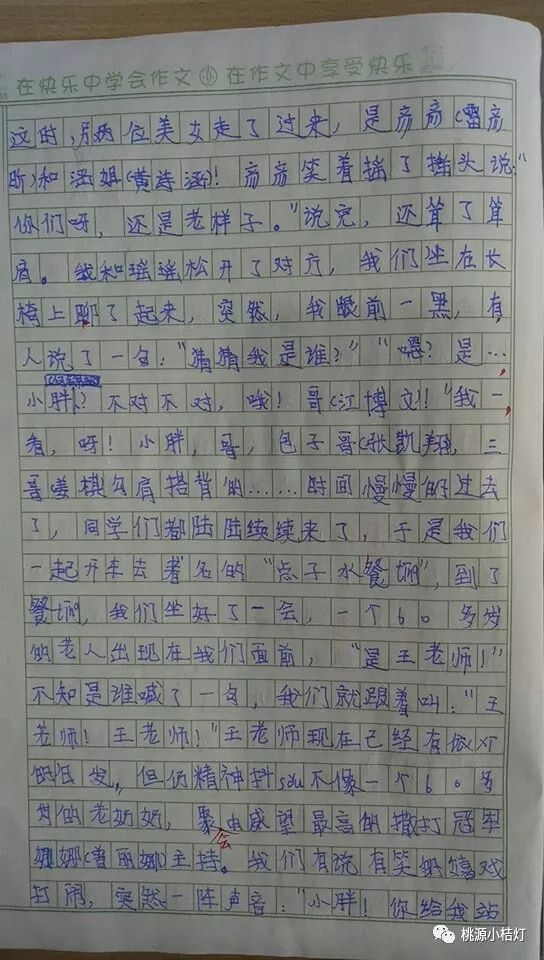 在快乐中学会作文 在作文中享受快乐
这时,另两位美女走了过来,是彦彦(雷彦
昕)和涵姐(黄诗涵)!彦彦笑着摇了摇头说:"
你们呀,还是老样子。"说完,还耸了耸
肩。我和瑶瑶松开了对方,我们坐在长
椅上聊了起来,突然,我眼前一黑,有
人说了一句:"猜猜我是谁?""嗯?是…
小胖?不对不对,哦!哥(江博文)!"我一
看,呀!小胖,哥,包子哥(张凯翔),三
哥姜棋勾肩搭背的……时间慢慢的过去
了,同学们都陆陆续续来了,于是我们
一起开车去著名的"点子水餐吧",到了
餐吧,我们坐好了一会,一个60多岁
的老人出现在我们面前,"是王老师!"
不知是谁喊了一句,我们就跟着叫:"王
老师!王老师!"王老师现在已经有些
的白发,但仍精神抖sou不像一个60多
岁的老奶奶,聚会由威望最高的撒打冠军
娜娜(曾丽娜)主持。我们有说有笑嬉戏
打闹,突然一阵声音:"小胖!你给我站
桃源小桔灯